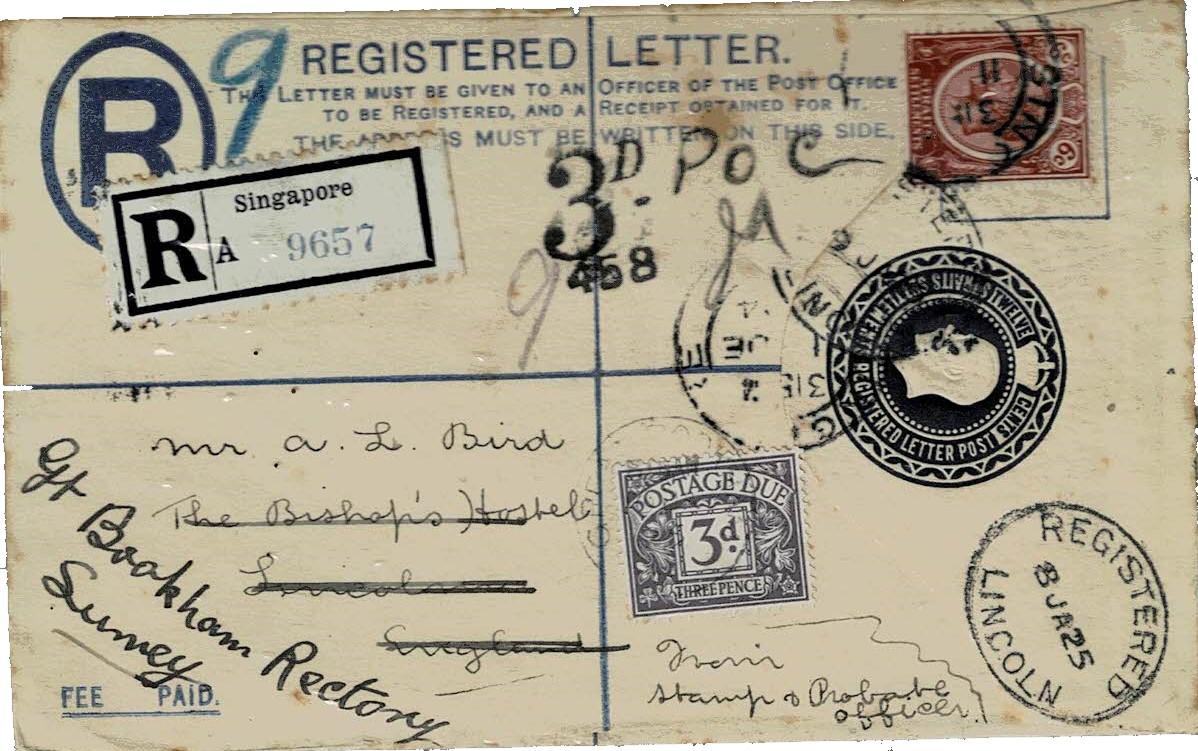 R
9
REGISTERED LETTER.
THE LETTER MUST BE GIVEN TO AN OFFICER OF THE POST OFFICE
TO BE REGISTERED, AND A RECEIPT OBTAINED FOR IT.
THE ADDRESS MUST BE WRITTEN ON THIS SIDE.
6c 6c
R A Singapore
9657
3D. POC
458
9
REGISTERED LETTER POST
STRAITS SETTLEMENTS TWELVE CENTS
315
Mr A. L. Bird
The Bishop's Hostel
Lincoln
England
Gt Bookham Rectory
Surrey
POSTAGE DUE
3d.
THREE PENCE
REGISTERED
8 JA 25
LINCOLN
From
Stamp & Probate
officer.
FEE PAID.